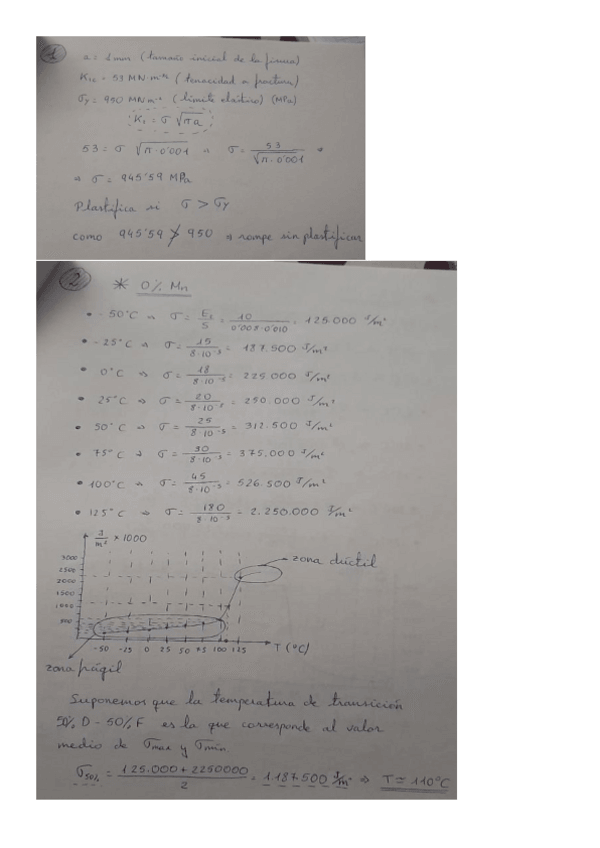 1
a = 1 mm (tamaño inicial de la fisura)
K₁c = 53 MN·m⁻³/² (tenacidad a fractura)
σy = 950 MN·m⁻² (límite elástico) (MPa)
K₁ = σ √πa
53 = σ √π·0'001 ⇒ σ = 53 / √π·0'001 ⇒
⇒ σ = 945'59 MPa
Plastifica si σ > σy
como 945'59 ≯ 950 ⇒ rompe sin plastificar
2 * 0% Mn
• -50°C ⇒ σ = E₁/S = 10 / 0'008·0'010 = 125.000 J/m²
• -25°C ⇒ σ = 15 / 8·10⁻⁵ = 187.500 J/m²
• 0°C ⇒ σ = 18 / 8·10⁻⁵ = 225.000 J/m²
• 25°C ⇒ σ = 20 / 8·10⁻⁵ = 250.000 J/m²
• 50°C ⇒ σ = 25 / 8·10⁻⁵ = 312.500 J/m²
• 75°C ⇒ σ = 30 / 8·10⁻⁵ = 375.000 J/m²
• 100°C ⇒ σ = 45 / 8·10⁻⁵ = 526.500 J/m²
• 125°C ⇒ σ = 180 / 8·10⁻⁵ = 2.250.000 J/m²
J/m² × 1000
3000
2500
2000
1500
1000
500
zona dúctil
-50 -25 0 25 50 75 100 125 T (°C)
zona frágil
Suponemos que la temperatura de transición
50% D - 50% F es la que corresponde al valor
medio de σmax y σmin
σ50% = 125.000 + 2250000 / 2 = 1.187.500 J/m² ⇒ T ≃ 110°C